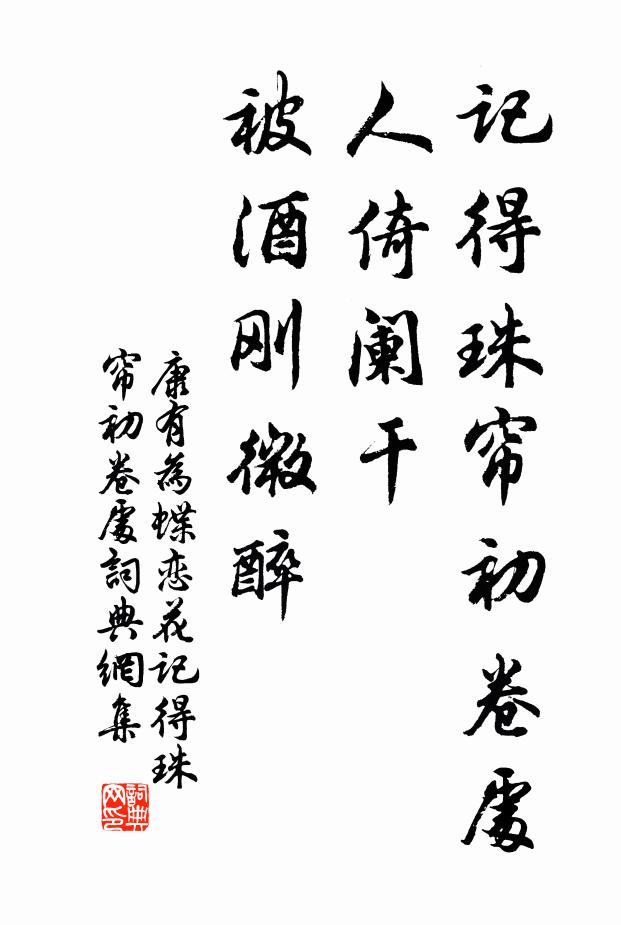 记得珠帘初卷處
人倚阑干
被酒刚微醉
康有為蝶恋花记得珠
帘初卷處詞典網集
詞典
网印